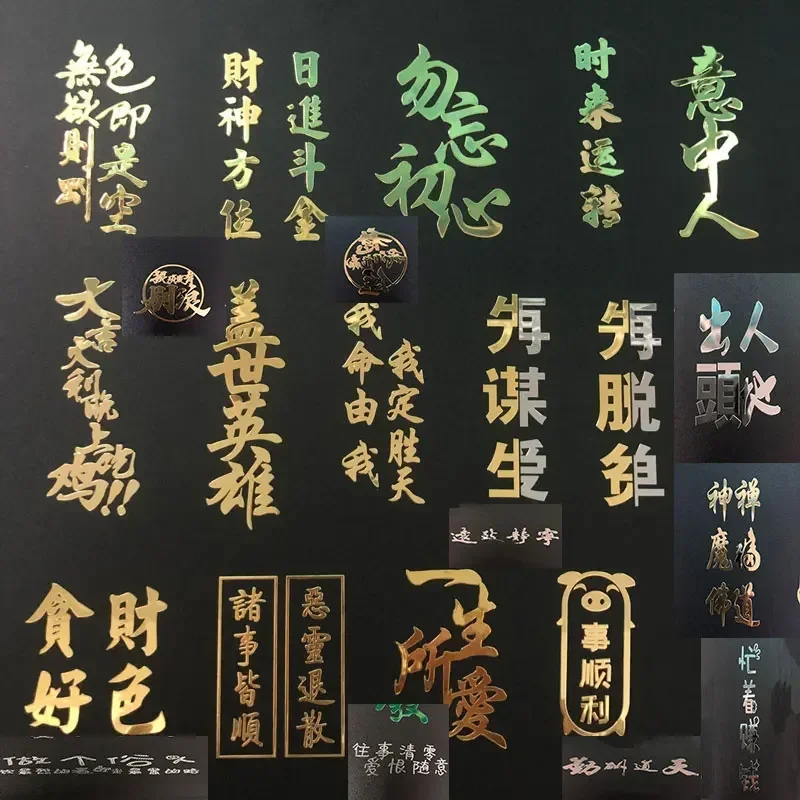 色即是空
無欲則剛
財神方位
日進斗金
勿忘初心
时来运转
意中人
大吉大利晚上吃鸡!!
盖世英雄
我命由我
我定胜天
先谋生
再谋爱
出人
頭地
寧静致遠
貪財
好色
惡靈退散
諸事皆順
一生所愛
事顺利
忙着赚钱
做个俗人
往事清零
爱恨随意
天道酬勤